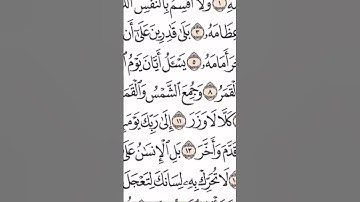 ۝١ وَلَآ أُقْسِمُ بِٱلنَّفْسِ
عِظَامَهُۥ ۝٣ بَلَىٰ قَٰدِرِينَ عَلَىٰٓ أَن
أَمَامَهُۥ ۝٥ يَسْـَٔلُ أَيَّانَ يَوْمُ
ٱلْقَمَرُ ۝٨ وَجُمِعَ ٱلشَّمْسُ وَٱلْقَمَ
كَلَّا لَا وَزَرَ ۝١١ إِلَىٰ رَبِّكَ يَوْمَئِ
قَدَّمَ وَأَخَّرَ ۝١٣ بَلِ ٱلْإِنسَٰنُ عَلَىٰ
لَا تُحَرِّكْ بِهِۦ لِسَانَكَ لِتَعْجَلَ